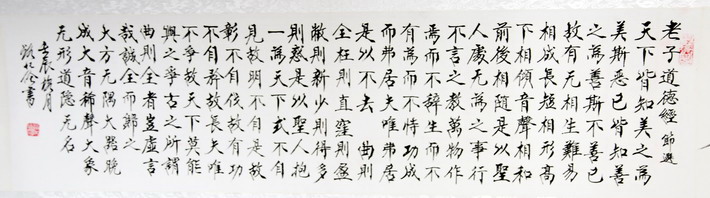 老子道德經 節選
天下皆知美之為
美斯惡已皆知善
之為善斯不善已
故有无相生難易
相成長短相形高
下相傾音聲相和
前後相隨是以聖
人處无為之事行
不言之教萬物作
焉而不辭生而不
有為而不恃功成
而弗居夫唯弗居
是以不去 曲則
全枉則直窪則盈
敝則新少則得多
則惑是以聖人抱
一為天下式不自
見故明不自是故
彰不自伐故有功
不自矜故長夫唯
不爭故天下莫能
與之爭古之所謂
曲則全者豈虛言
哉誠全而歸之
大方无隅大器晚
成大音稀聲大象
无形道隱无名
壬辰 月
書